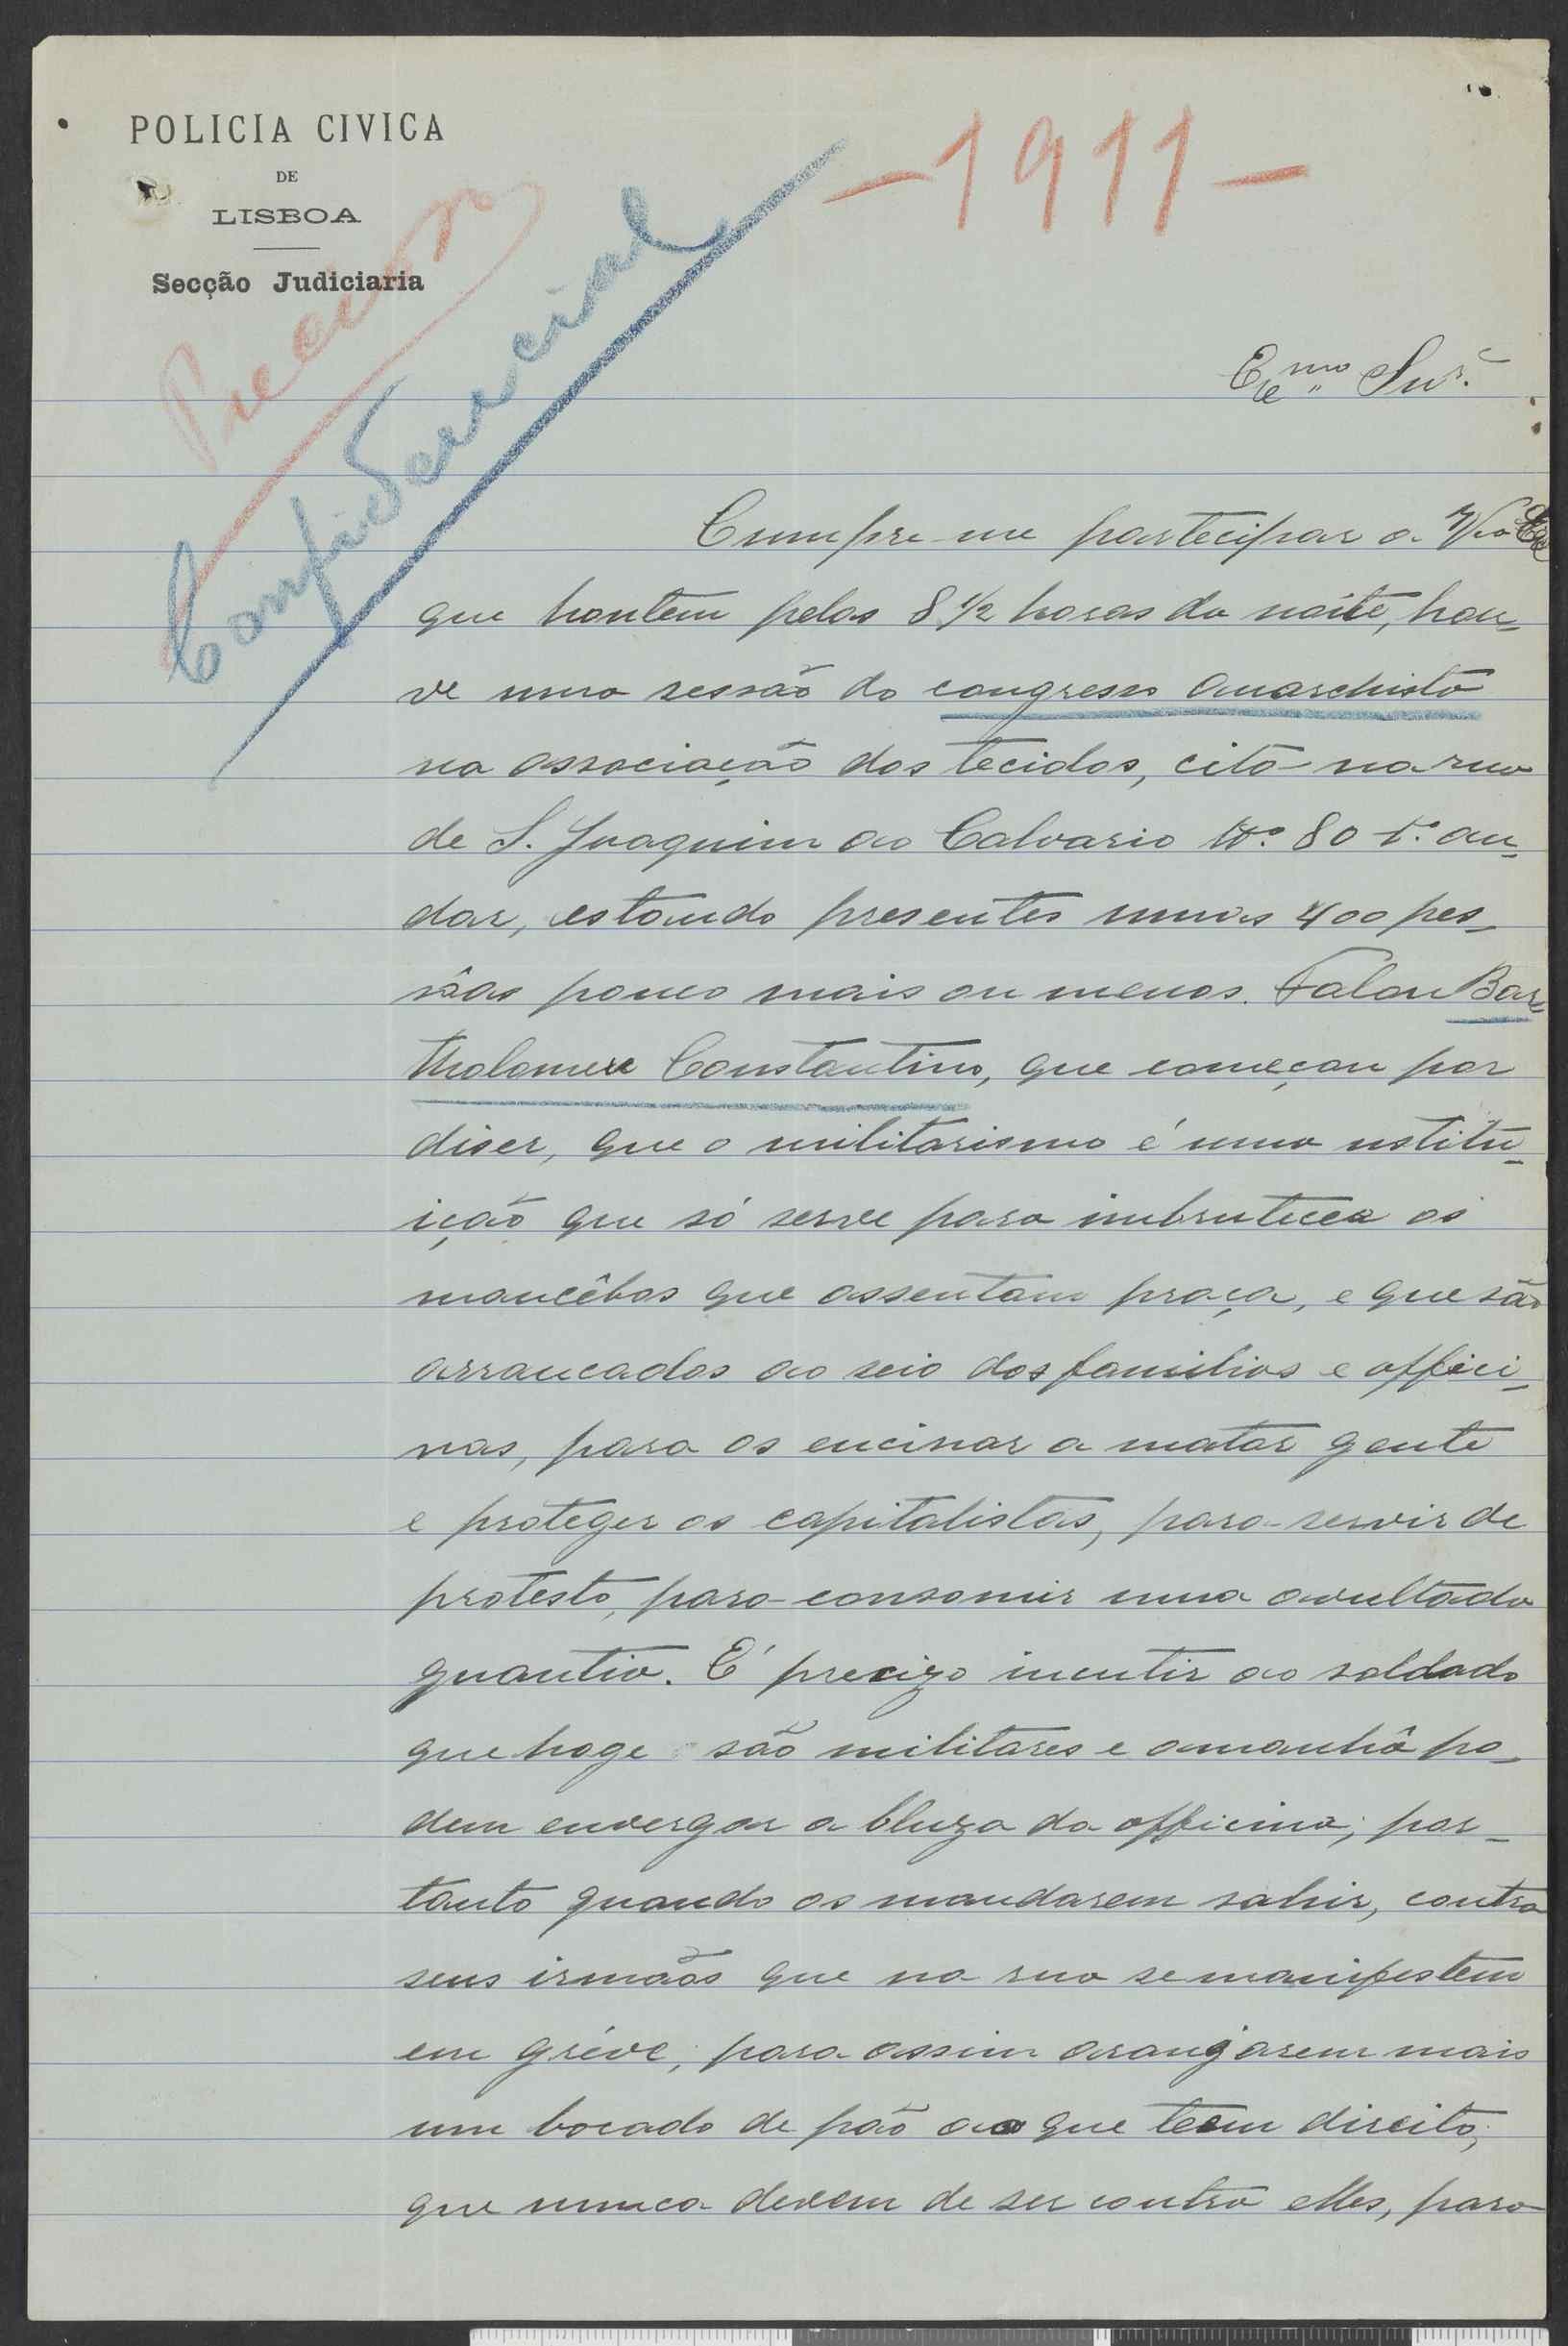 POLICIA CIVICA
DE
LISBOA
Secção Judiciaria
-1911-
Confidencial
Exmo Snr.
Cumpre-me partecipar a V. Exa
que hontem pelas 8 1/2 horas da noite, hou-
ve uma sessão do congresso anarchista
na associação dos tecidos, cito na rua
de S. Joaquim ao Calvario Nº. 80 1º. an-
dar, estando presentes umas 400 pes-
sôas pouco mais ou menos. Falou Bar-
tholomeu Constantino, que começou por
diser, que o militarismo é uma nstitu-
ição que só serve para imbrutecer os
mancêbos que assentam praça, e que são
arrancados ao seio das familias e offici-
nas, para os encinar a matar gente
e proteger os capitalistas, para servir de
protesto, para consomir uma avultada
quantia. É precizo incutir ao soldado
que hoge são militares e amanhã po-
dem envergar a bluza da officina; por-
tanto quando os mandarem sahir, contra
seus irmãos que na rua se manifestem
em gréve, para assim aranjarem mais
um bocado de pão ao que teem direito,
que nunca devem de ser contra elles, para